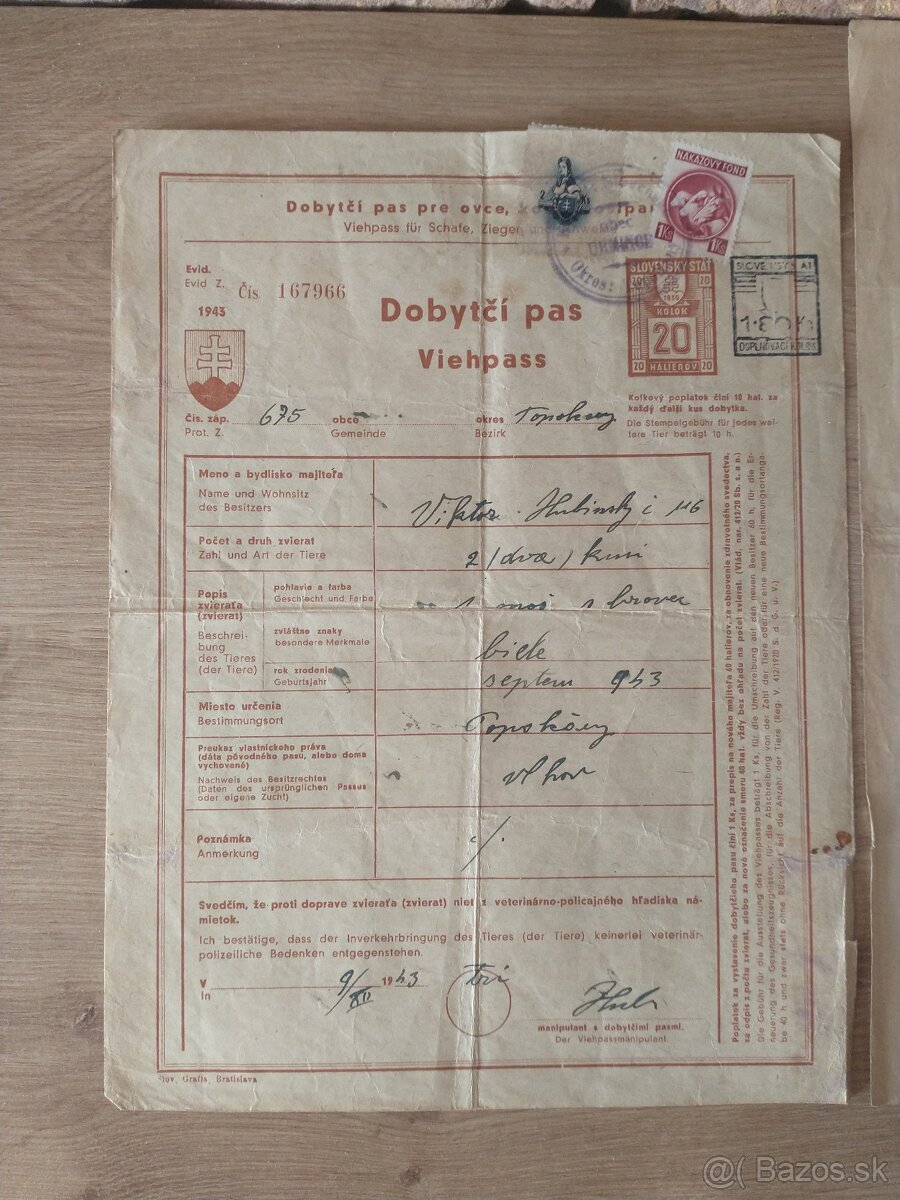 NÁKAZOVÝ FOND
1 Ks 1 Ks
Dobytčí pas pre ovce,
Viehpass für Schafe, Ziegen
Evid.
Evid Z.
Čís 167966
1943
Dobytčí pas
Viehpass
SLOVENSKÝ ŠTÁT
20 20
1939
KOLOK
20
HALIEROV
20 20
DOPLŇOVACÍ KOLOK
Kolkový poplatok činí 10 hal. za
každý ďalší kus dobytka.
Die Stempelgebühr für jedes wei-
tere Tier beträgt 10 h.
Čís. záp. 675 obce okres
Prot. Z. Gemeinde Bezirk
Meno a bydlisko majiteľa
Name und Wohnsitz
des Besitzers
Viktor 116
Počet a druh zvierat
Zahl und Art der Tiere
2 /dva/ kusi
Popis
zvieraťa
(zvierat)
Beschrei-
bung
des Tieres
(der Tiere)
pohlavie a farba
Geschlecht und Farbe
zvláštne znaky
besondere Merkmale
biele
rok zrodenia
Geburtsjahr
septem 943
Miesto určenia
Bestimmungsort
Preukaz vlastníckeho práva
(dáta pôvodného pasu, alebo doma
vychované)
Nachweis des Besitzrechtes
(Daten des ursprünglichen Passus
oder eigene Zucht)
vl. chov
Poznámka
Anmerkung
Svedčím, že proti doprave zvieraťa (zvierat) niet z veterinárno-policajného hľadiska ná-
mietok.
Ich bestätige, dass der Inverkehrbringung des Tieres (der Tiere) keinerlei veterinär-
polizeiliche Bedenken entgegenstehen.
V
In
9/XII 1943
manipulant s dobytčími pasmi.
Der Viehpassmanipulant.
Slov. Grafia, Bratislava
Poplatok za vystavenie dobytčieho pasu činí 1 Ks, za prepis na nového majiteľa 60 halierov, za obnovenie zdravotného svedectva,
za odpis z počtu zvierat, alebo za nové označenie smeru 40 hal. vždy bez ohľadu na počet zvierat. (Vlád. nar. 412/20 Sb. z. a n.)
Die Gebühr für die Ausstellung des Viehpasses beträgt 1 Ks, für die Umschreibung auf den neuen Besitzer 60 h, für die Er-
neuerung des Gesundheitszeugnisses, für die Abschreibung von der Zahl der Tiere oder für eine neue Bestimmungsortanga-
be 40 h und zwar stets ohne Rücksicht auf die Anzahl der Tiere (Reg. V. 412/1920 S. d. G. u. V.)
@( Bazos.sk